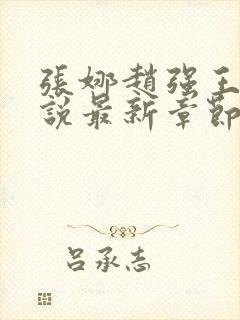 張娜趙强王
說最新章節
吕承志